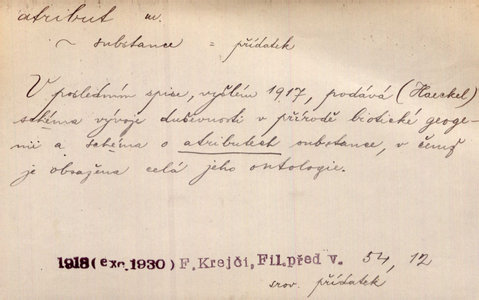 atribut m.
~ substance = přídatek
V posledním spise, vyšlém 1917, podává (Haeckel)
schéma vývoje duševnosti v přírodě biotické geoge-
nii a schéma o atributech substance, v čemž
je obsažena celá jeho ontologie.
1918 (exc. 1930) F. Krejčí, Fil.před v. 54, 12
srov. přídatek